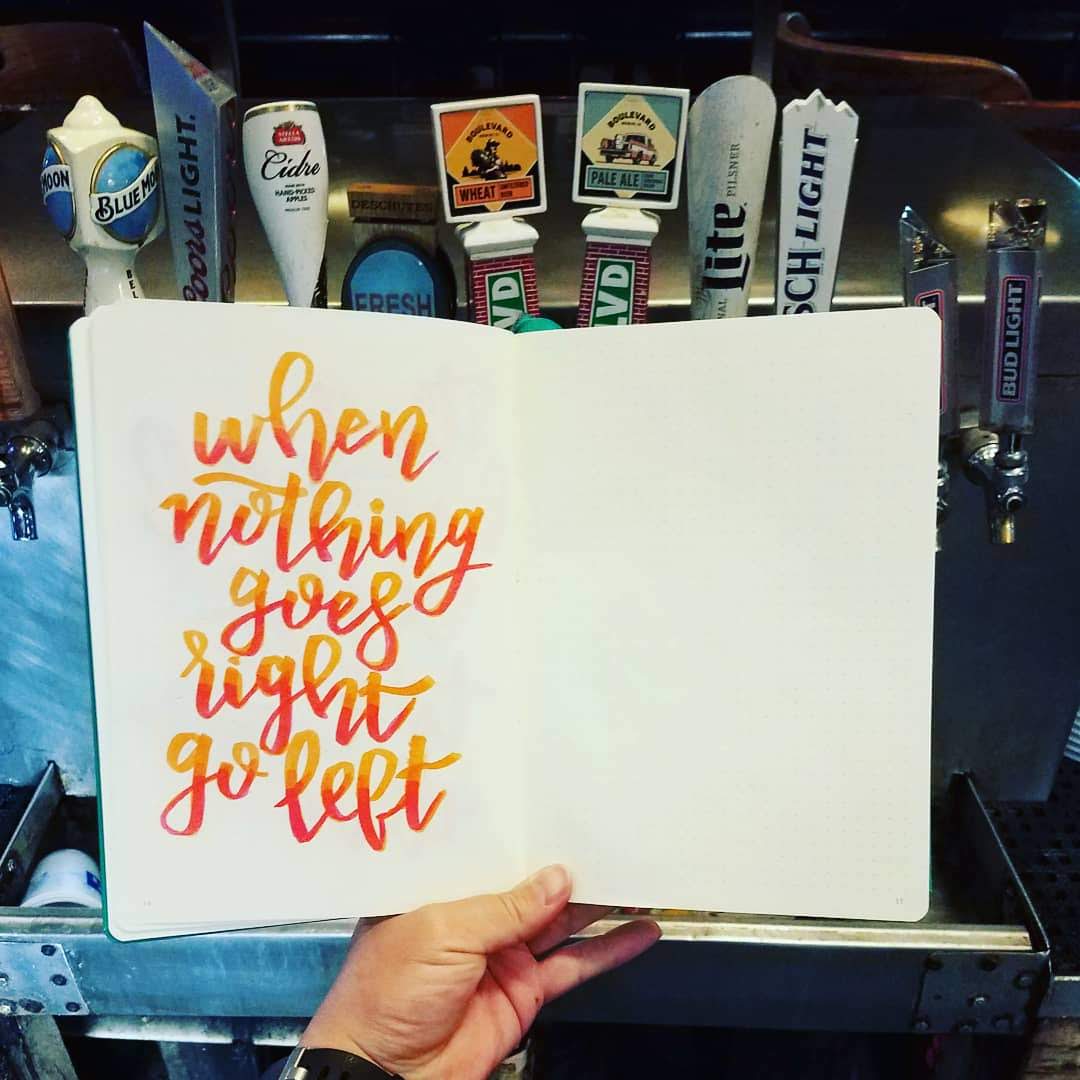 MOON
BLUE MO
BEL
COORS LIGHT.
STELLA ARTOIS
Cidre
MADE WITH
HAND-PICKED
APPLES
DESCHUTES
FRESH
BOULEVARD
WHEAT
BLVD
BOULEVARD
PALE ALE
BLVD
Lite
PILSNER
NAL
SCH LIGHT
BUD LIGHT
when
nothing
goes
right
go left